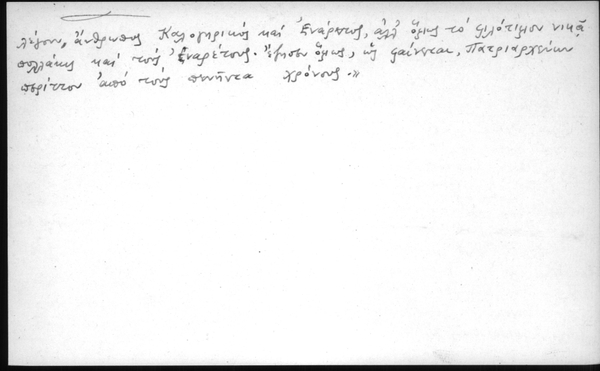 λέγουν, ἄνθρωπος Καλογηρικὸς καὶ Ἐνάρετος, ἀλλ' ὅμως τὸ φιλότιμον νικᾷ
πολλάκις καὶ τοὺς Ἐναρέτους. ἔζησεν ὅμως, ὡς φαίνεται, Πατριαρχεύων
περίπου ἀπὸ τοὺς πενήντα χρόνους.»